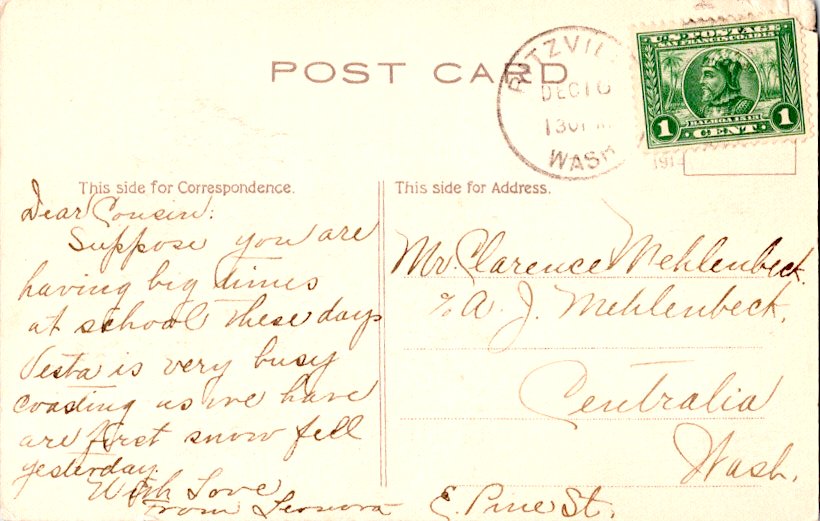 POST CARD
RITZVIL
DEC 16
130P M
WASH
U.S. POSTAGE
SAN FRANCISCO 1915
BALBOA 1513
1 CENT 1
191
This side for Correspondence.
Dear Cousin:
Suppose you are
having big times
at school these days
Vesta is very busy
coasting as we have
are first snow fell
yesterday.
With Love
From Leonora
This side for Address.
Mr. Clarence Mehlenbeck.
% A. J. Mehlenbeck,
Centralia
Wash.
E. Pine St.